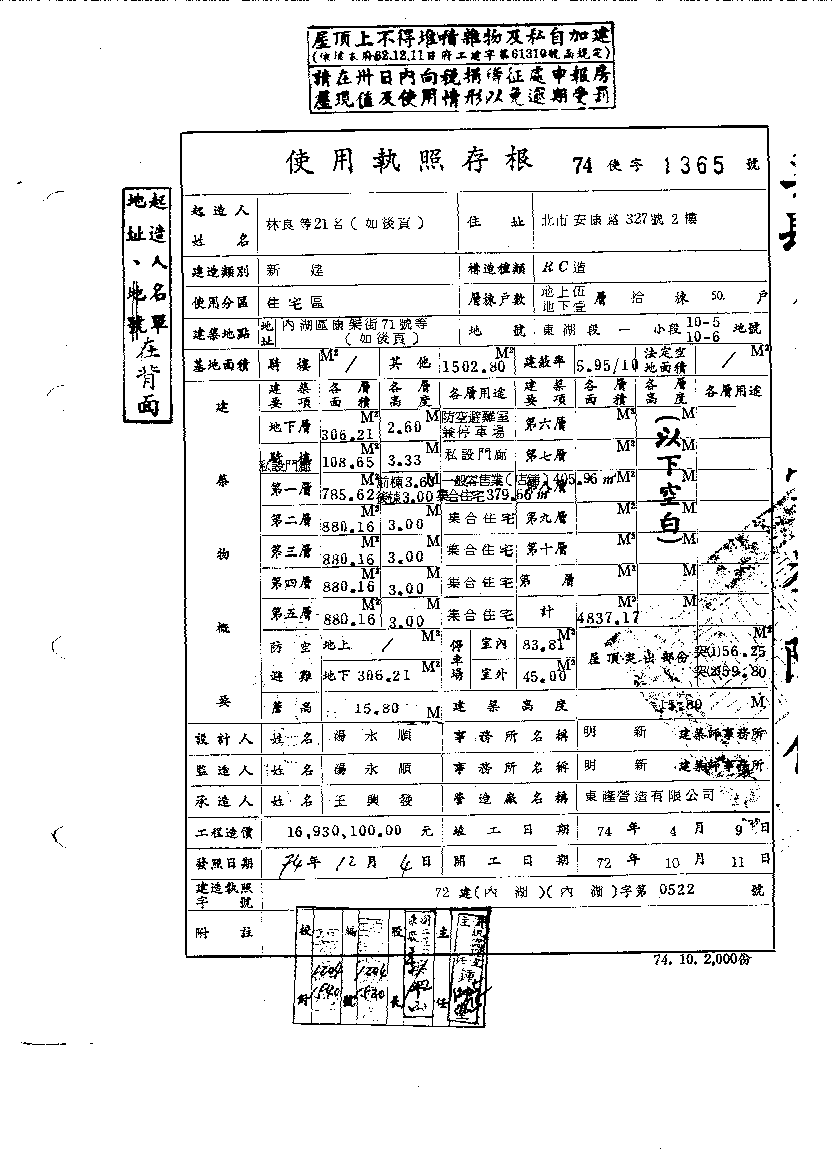 屋頂上不得堆積雜物及私自加建
(依據本府62.12.11日府工建字第61310號函規定)
請在卅日內向稅捐稽征處申報房
屋現值及使用情形以免逾期受罰
起造人名單
地址、地號在背面
使用執照存根 74 使字 1365 號
起造人姓名 林良等21名(如後頁) 住址 北市安康路327號2樓
建造類別 新建 構造種類 RC造
使用分區 住宅區 層棟戶數 地上伍 地下壹 層 拾棟 50. 戶
建築地點 地址 內湖區康樂街71號等(如後頁) 地號 東湖段一小段 10-5 10-6 地號
基地面積 騎樓 M² / 其他 1502.80 M² 建蔽率 5.95/10 法定空地面積 / M²
建築物概要 建築要項 各層面積 各層高度 各層用途 建築要項 各層面積 各層高度 各層用途
地下層 306.21 M² 2.60 M 防空避難室兼停車場 第六層 M² M
騎樓 私設門廊 108.65 M² 3.33 M 私設門廊 第七層 M² M
第一層 785.62 M² 前棟3.60 後棟3.00 M 一般零售業(店鋪)405.96㎡ 集合住宅379.66㎡ 第八層 M² M
(以下空白)
第二層 880.16 M² 3.00 M 集合住宅 第九層 M² M
第三層 880.16 M² 3.00 M 集合住宅 第十層 M² M
第四層 880.16 M² 3.00 M 集合住宅 第 層 M² M
第五層 880.16 M² 3.00 M 集合住宅 計 4837.17 M² M
防空避難 地上 / M² 停車場 室內 83.81 M² 屋頂突出部份 突(1)56.25 M²
地下 306.21 M² 室外 45.00 M² 突(2)59.80
簷高 15.80 M 建築高度 15.80 M
設計人 姓名 湯永順 事務所名稱 明新 建築師事務所
監造人 姓名 湯永順 事務所名稱 明新 建築師事務所
承造人 姓名 王興發 營造廠名稱 東隆營造有限公司
工程造價 16,930,100.00 元 竣工日期 74 年 4 月 9 日
發照日期 74 年 12 月 4 日 開工日期 72 年 10 月 11 日
建造執照字號 72 建(內湖)(內湖)字第 0522 號
附註
74.10.2,000份
校對 編號 股長 主任
1204 1204
1540 1530